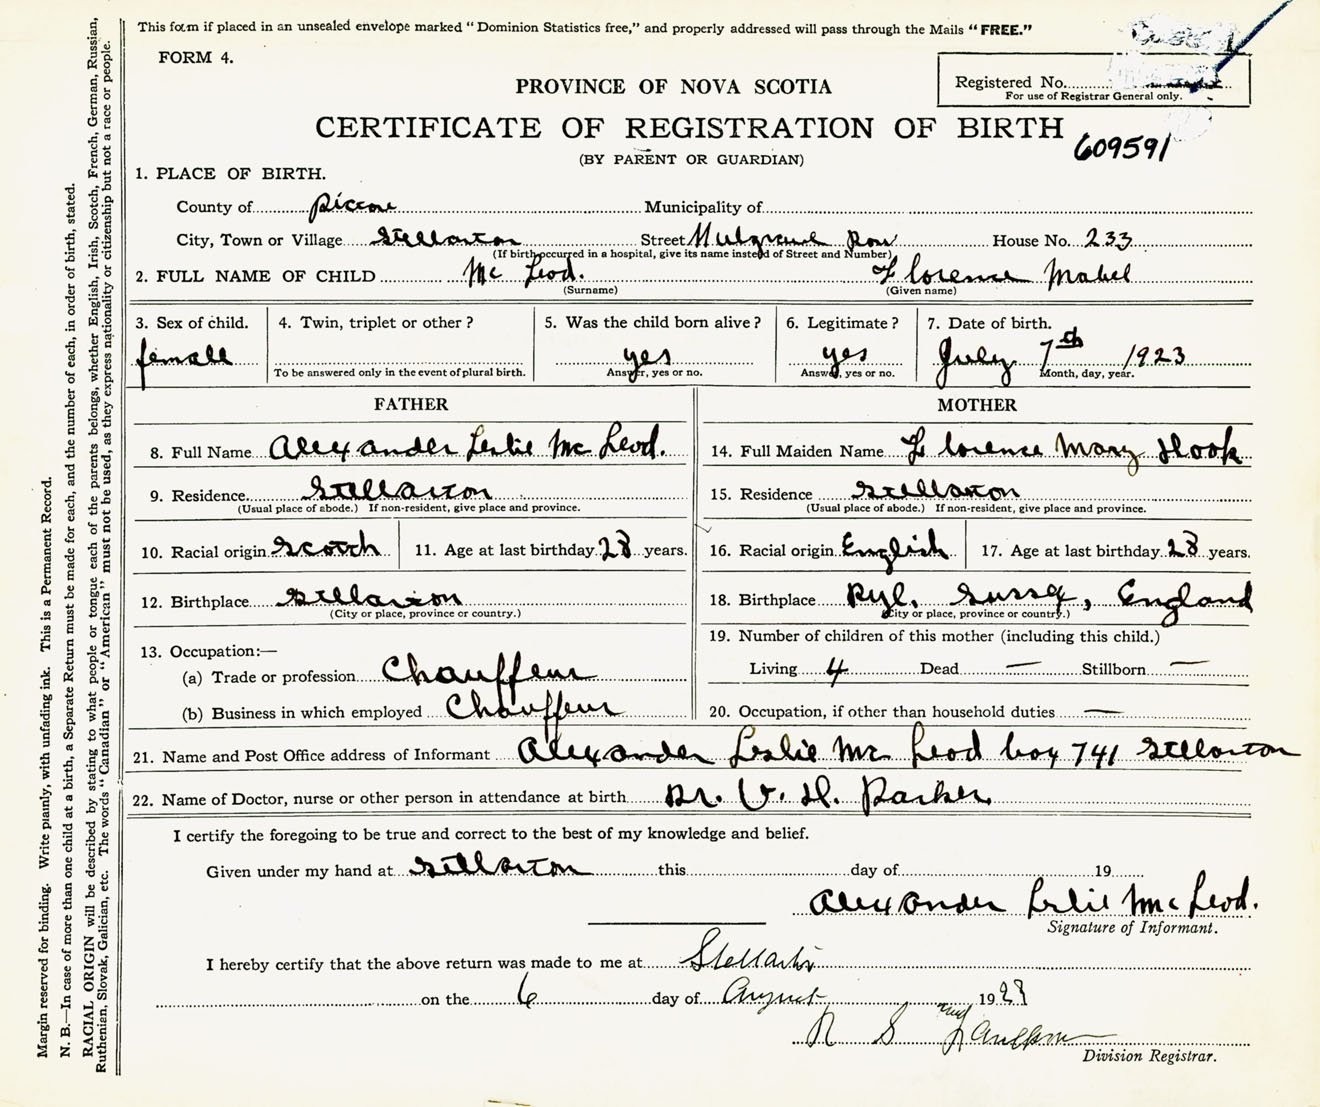 This form if placed in an unsealed envelope marked "Dominion Statistics free," and properly addressed will pass through the Mails "FREE."
FORM 4.
PROVINCE OF NOVA SCOTIA
Registered No.
For use of Registrar General only.
CERTIFICATE OF REGISTRATION OF BIRTH
609591
(BY PARENT OR GUARDIAN)
1. PLACE OF BIRTH.
County of Pictou Municipality of
City, Town or Village Stellarton Street Mulgrave Row House No. 233
(If birth occurred in a hospital, give its name instead of Street and Number)
2. FULL NAME OF CHILD Mc Leod. Florence Mabel
(Surname) (Given name)
3. Sex of child. 4. Twin, triplet or other? 5. Was the child born alive? 6. Legitimate? 7. Date of birth.
female yes yes July 7th 1923
To be answered only in the event of plural birth. Answer, yes or no. Answer, yes or no. Month, day, year.
FATHER MOTHER
8. Full Name Alexander Leslie Mc Leod. 14. Full Maiden Name Florence Mary Hook
9. Residence Stellarton 15. Residence Stellarton
(Usual place of abode.) If non-resident, give place and province. (Usual place of abode.) If non-resident, give place and province.
10. Racial origin Scotch 11. Age at last birthday 28 years. 16. Racial origin English 17. Age at last birthday 28 years.
12. Birthplace Stellarton 18. Birthplace Ryl, Sussex, England
(City or place, province or country.) (City or place, province or country.)
19. Number of children of this mother (including this child.)
13. Occupation:—
(a) Trade or profession Chauffeur Living 4 Dead — Stillborn —
(b) Business in which employed Chauffeur 20. Occupation, if other than household duties —
21. Name and Post Office address of Informant Alexander Leslie Mc Leod box 741 Stellarton
22. Name of Doctor, nurse or other person in attendance at birth Dr. V. H. Parker
I certify the foregoing to be true and correct to the best of my knowledge and belief.
Given under my hand at Stellarton this day of 19
Alexander Leslie Mc Leod.
Signature of Informant.
I hereby certify that the above return was made to me at Stellarton
on the 6 day of August 19
R S
Division Registrar.
Margin reserved for binding. Write plainly, with unfading ink. This is a Permanent Record.
N. B.—In case of more than one child at a birth, a Separate Return must be made for each, and the number of each, in order of birth, stated.
RACIAL ORIGIN will be described by stating to what people or tongue each of the parents belongs, whether English, Irish, Scotch, French, German, Russian,
Ruthenian, Slovak, Galician, etc. The words "Canadian" or "American" must not be used, as they express nationality or citizenship but not a race or people.